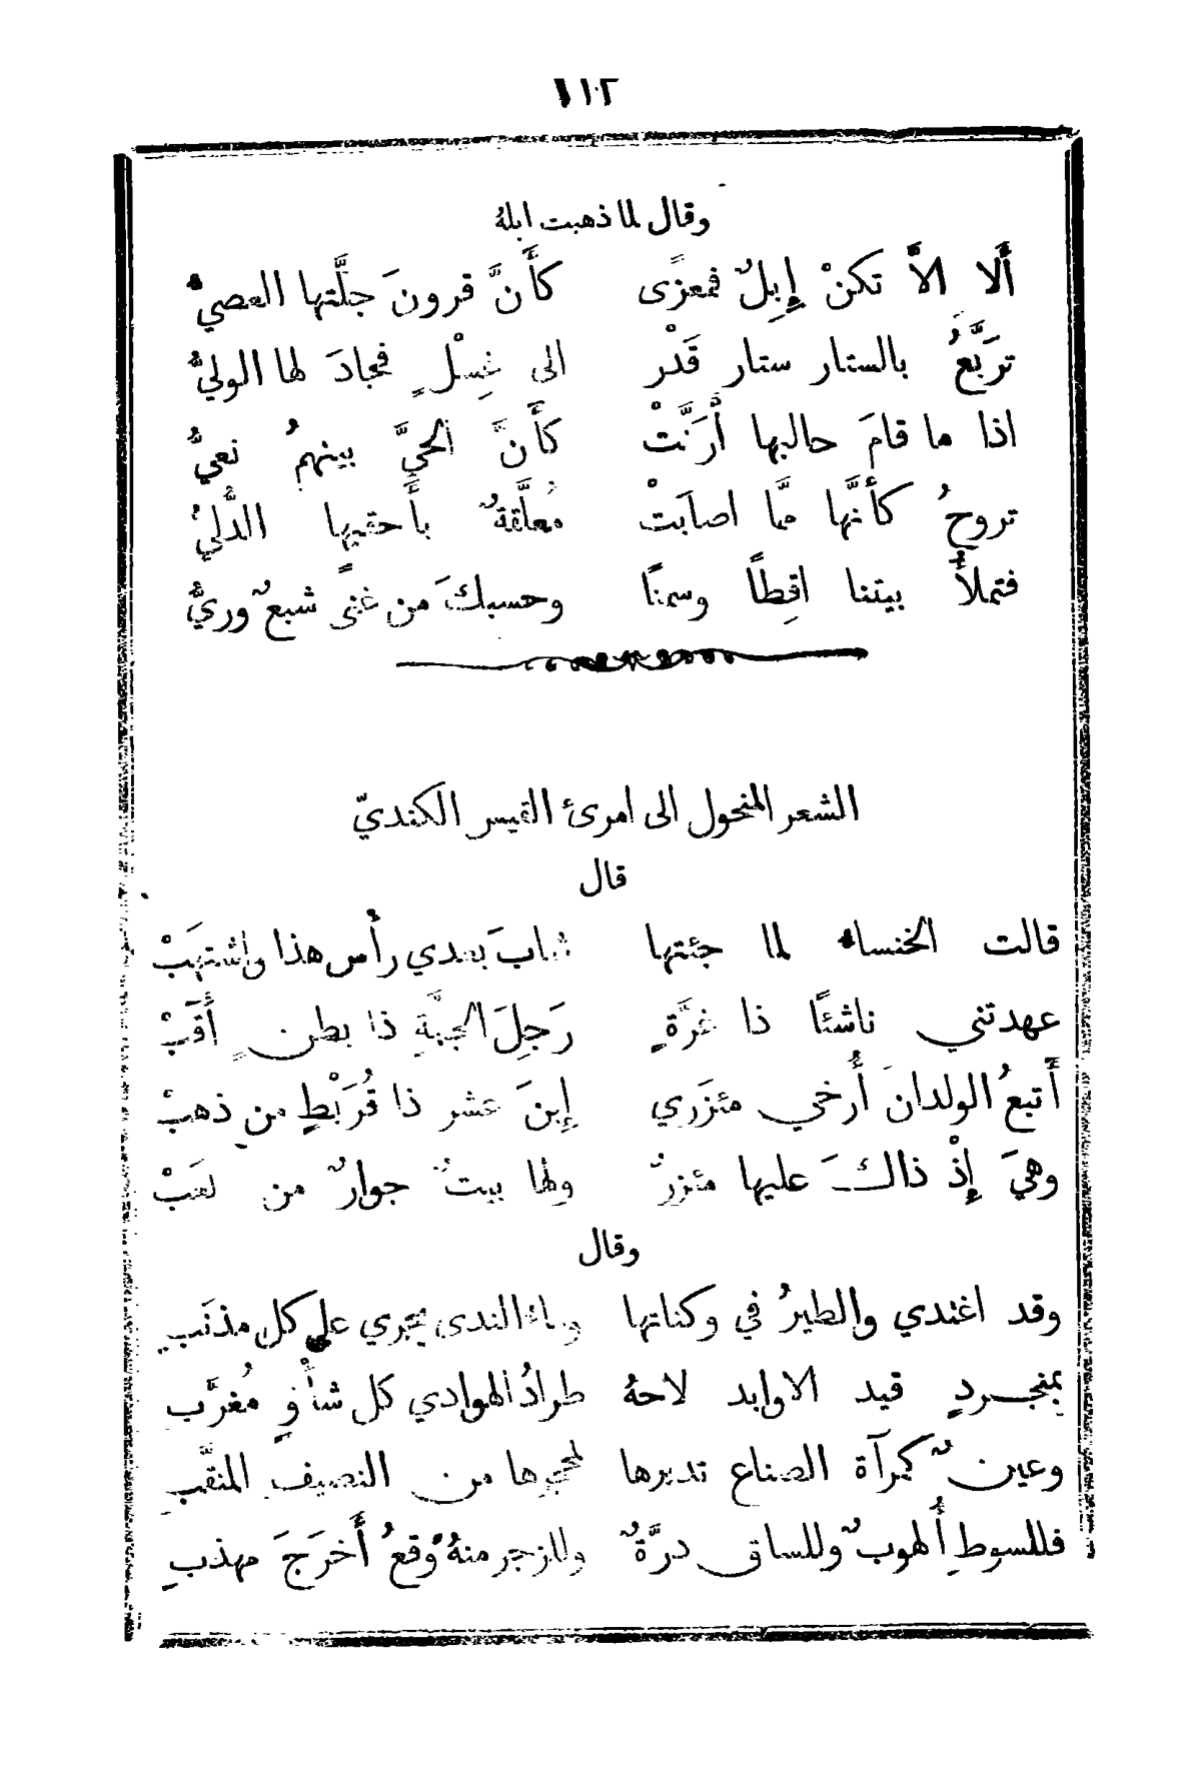 ١١٢
وقال لما ذهبت ابلهُ
أَلا الاَّ تكنْ إِبِلٌ فمعزًى كأَنَّ قرونَ جلَّتها العصيُّ
تربَّعُ بالستار ستار قَدْر الى غِسْلٍ فجادَ لها الوليُّ
اذا ما قامَ حالبها أَرَنَّتْ كأَنَّ الحيَّ بينهمُ نعيُّ
تروحُ كأَنَّها ممَّا اصابَتْ مُعلَّقةٌ بأَحقيها الدُّليُّ
فتملأُ بيتنا اقِطاً وسمنًا وحسبكَ من غنًى شبعٌ وريُّ
الشعر المنحول الى امرئ القيس الكنديّ
قال
قالت الخنساء لما جئتها شابَ بعدي رأس هذا واشتهَبْ
عهدتني ناشئًا ذا غرَّةٍ رَجِلَ الجمَّةِ ذا بطنٍ أَقَبّْ
أَتبعُ الولدانَ أُرخي مئزَري إِبنَ عشر ذا قُرَيْطٍ من ذهبْ
وهيَ إِذْ ذاكَ عليها مئزرٌ ولها بيتُ جوارٌ من لعَبْ
وقال
وقد اغتدي والطيرُ في وكناتها وماء الندى يجري على كل مذنَبِ
بمنجردٍ قيد الاوابد لاحهُ طرادُ الهوادي كل شأوٍ مُغرَّب
وعينٌ كمرآة الصناع تديرها لمحجرها من النصيف المنقَّبِ
فللسوطِ أُلهوبٌ وللساق درَّةٌ وللزجر منهُ وقعُ أَخرَجَ مهذبِ